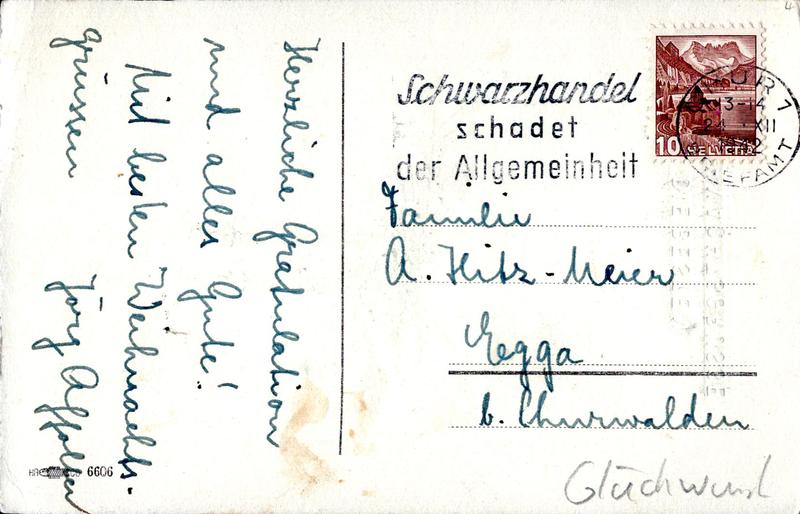 Herzliche Gratulation
und alles Gute!
Mit besten Weihnachts-
grüssen
Jörg Affolter
6606
Schwarzhandel
schadet
der Allgemeinheit
CHUR 1
13-14
XII
BRIEFAMT
10 HELVETIA
Familie
A. Hitz-Meier
Egga
b. Churwalden
Glückwunsch
4